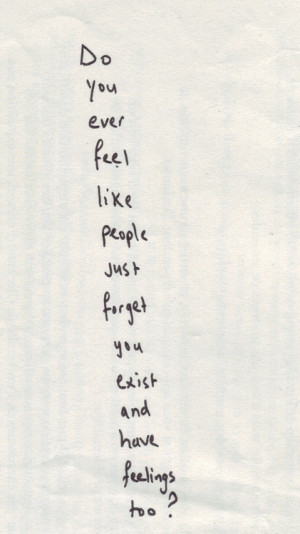 Do
you
ever
feel
like
people
just
forget
you
exist
and
have
feelings
too?